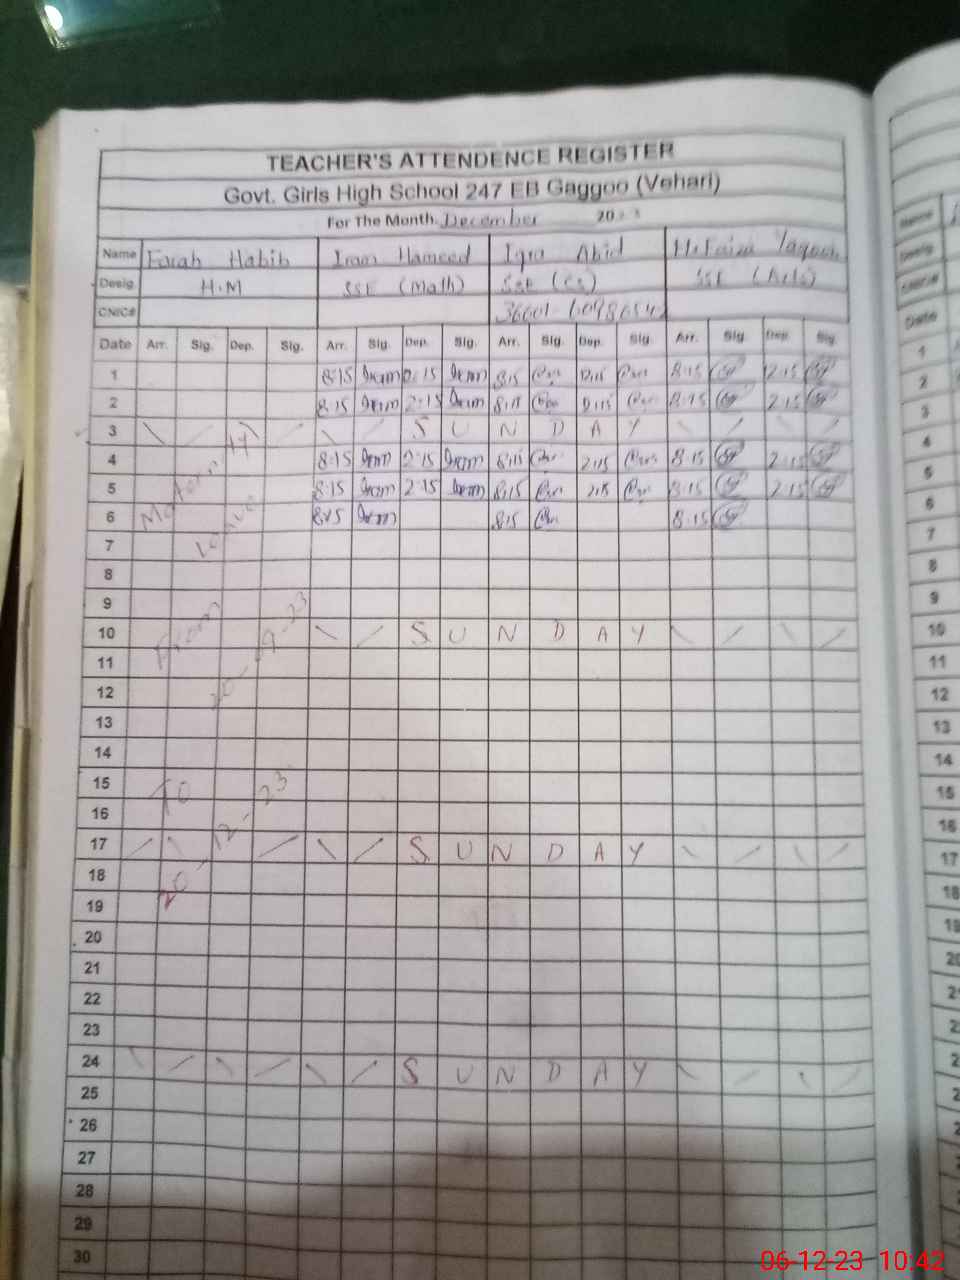 TEACHER'S ATTENDENCE REGISTER
Govt. Girls High School 247 EB Gaggoo (Vehari)
For The Month. December 2023
Name Farah Habib Iram Hameed Iqra Abid
Desig. H.M SSE (Math) SSE (CS) SSE (Arts)
CNIC#
Date Arr. Sig. Dep. Sig. Arr. Sig. Dep. Sig. Arr. Sig. Dep. Sig. Arr. Sig. Dep. Sig.
1 8:15 Iram 2:15 Iram 8:15 2:15 8:15 2:15
2 8:15 Iram 2:15 Iram 8:15 2:15 8:15 2:15
3 S U N D A Y
4 8:15 Iram 2:15 Iram 8:15 2:15 8:15 2:15
5 8:15 Iram 2:15 Iram 8:15 2:15 8:15 2:15
6 8:15 Iram 8:15 8:15
Maternity
Leave
7
8
9
10 S U N D A Y
From
20-9-23
11
12
13
14
15
To
16
17 S U N D A Y
20-12-23
18
19
20
21
22
23
24 S U N D A Y
25
26
27
28
29
30
Name
Desig.
CNIC#
Date
1
2
3
4
5
6
7
8
9
10
11
12
13
14
15
16
17
18
19
20
06-12-23 10:42